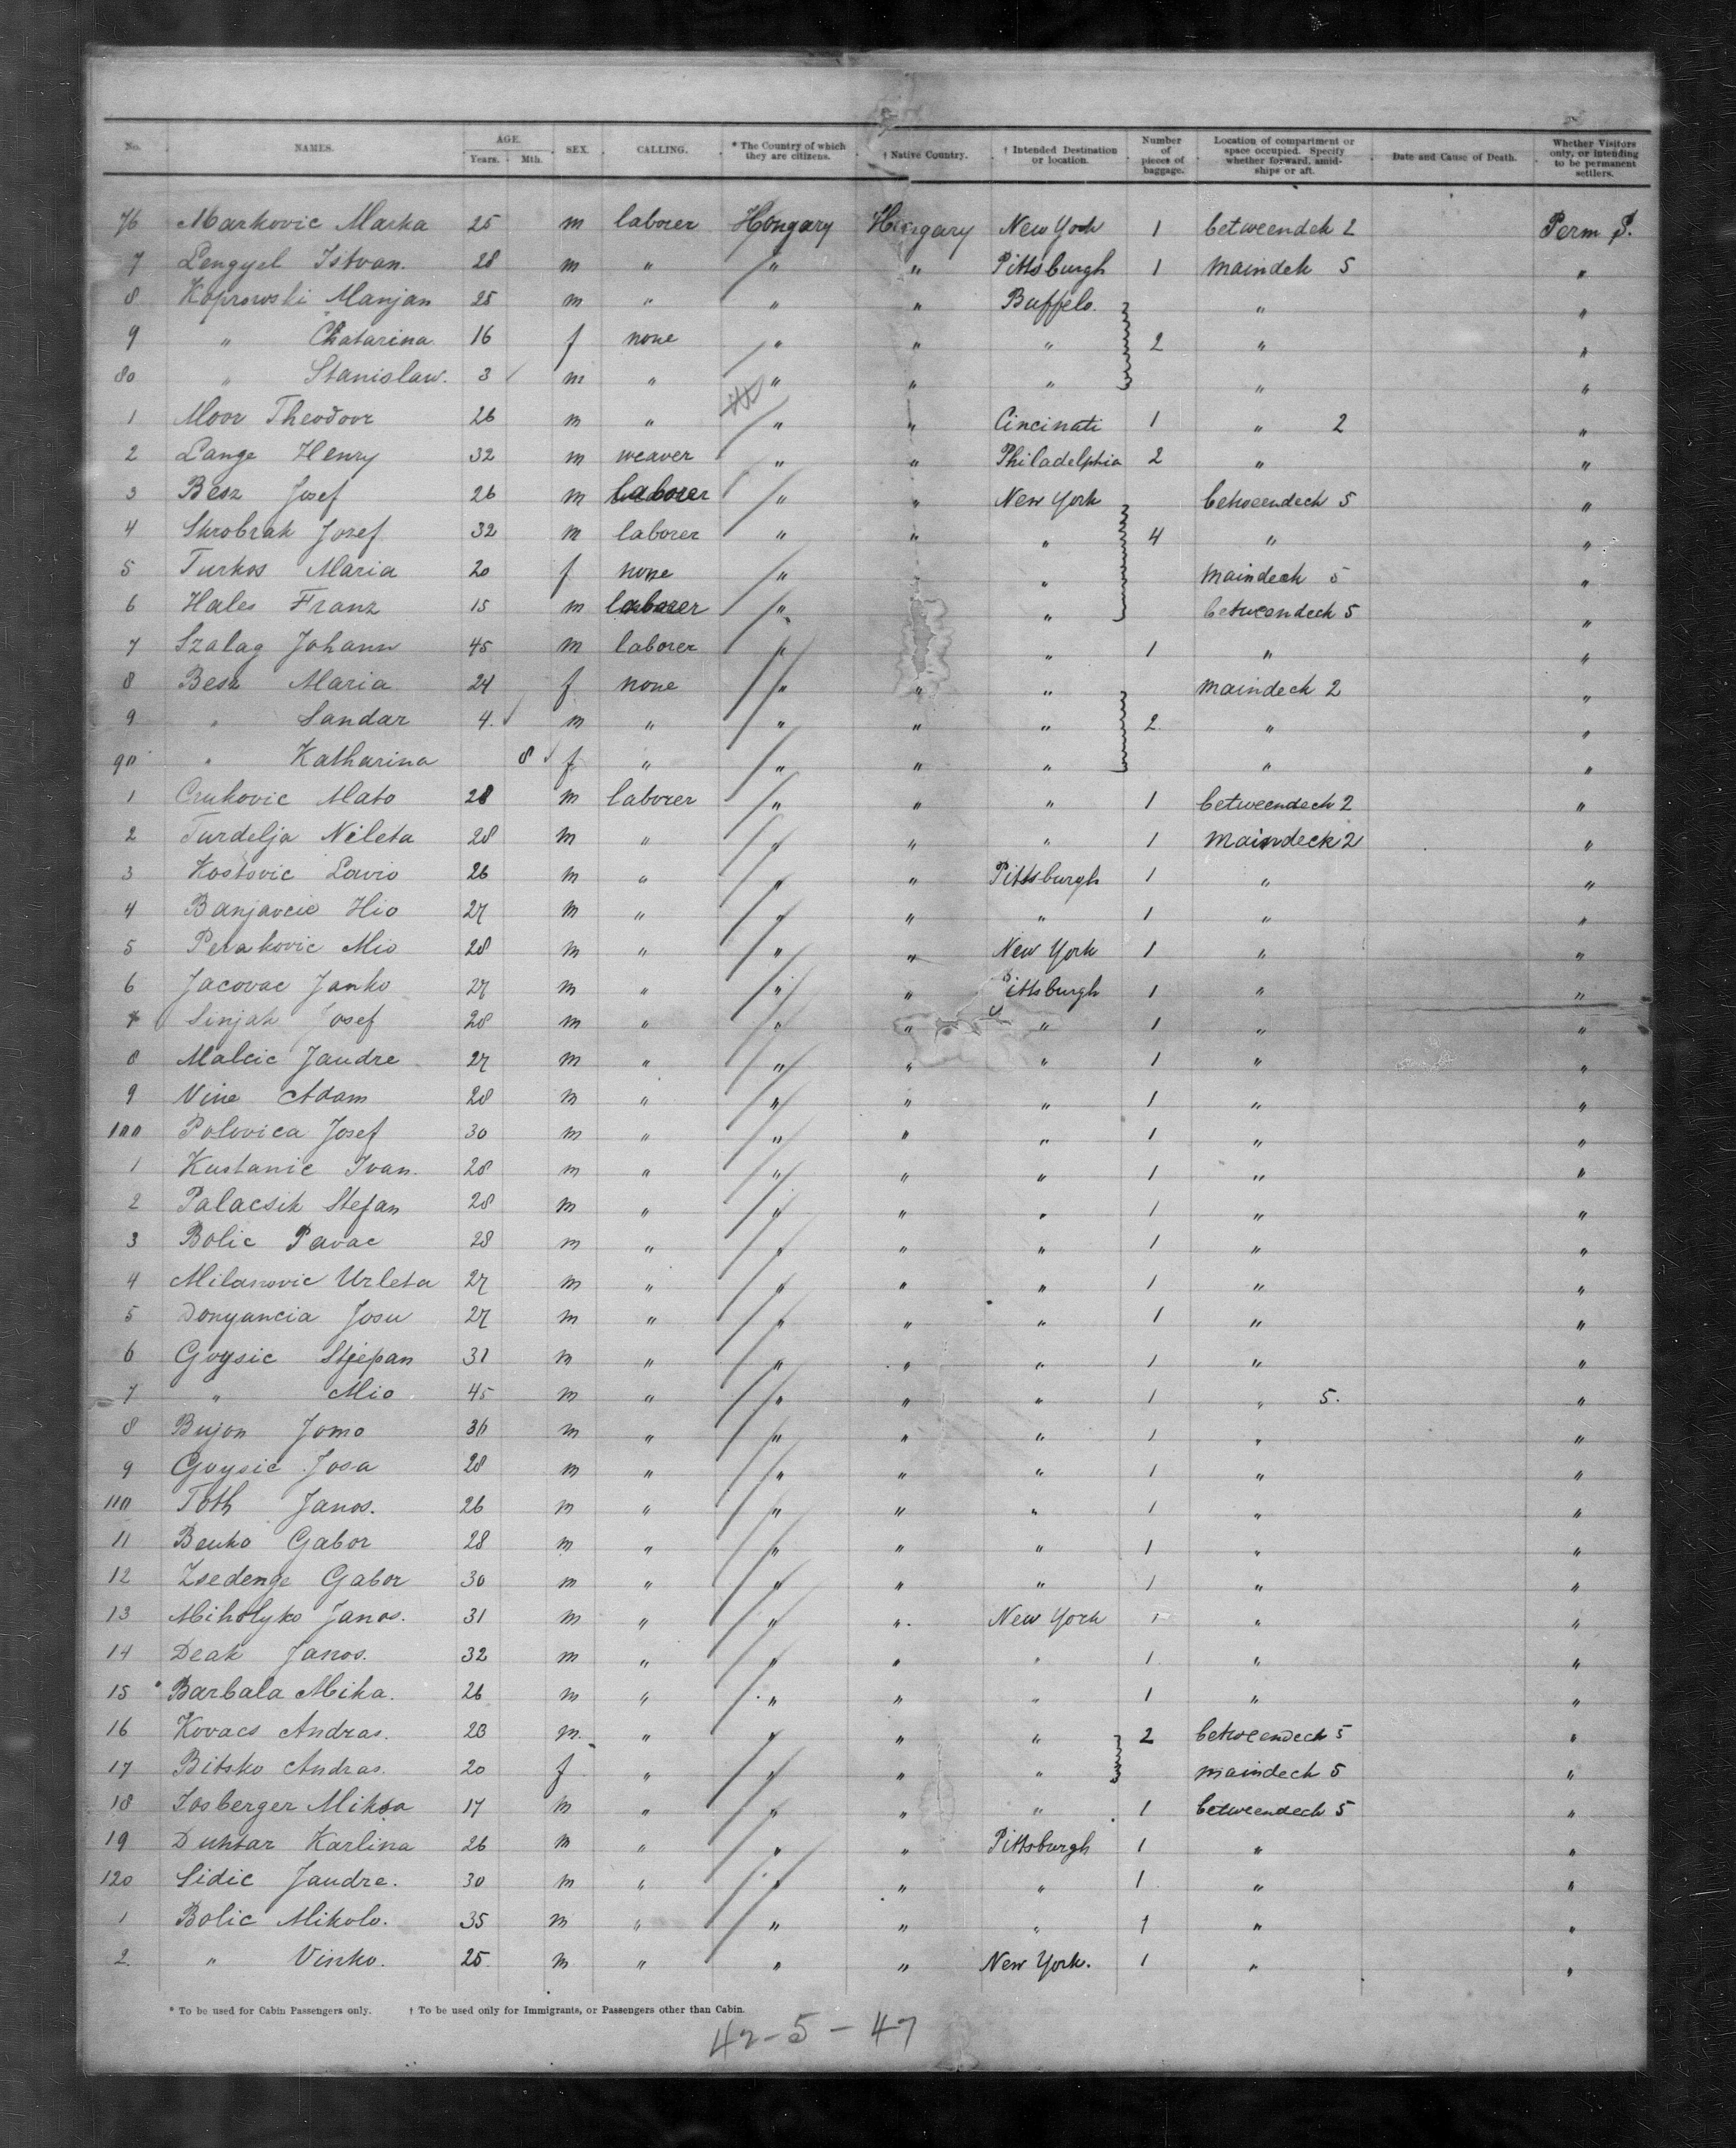 No. NAMES. AGE. Years. Mth. SEX. CALLING. * The Country of which they are citizens. † Native Country. † Intended Destination or location. Number of pieces of baggage. Location of compartment or space occupied. Specify whether forward, amidships or aft. Date and Cause of Death. Whether Visitors only, or intending to be permanent settlers.
76 Markovic Marka 25 m laborer Hongary Hungary New York 1 betweendek 2 Perm S.
7 Lengyel Istvan. 28 m " " " Pittsburgh 1 maindek 5 "
8 Koprowski Manjan 25 m " " " Buffelo. " "
9 " Chatarina 16 f none " " " 2 " "
80 " Stanislaw. 3 m " " " " " "
1 Moor Theodoor 26 m " " " Cincinati 1 " 2 "
2 Lange Henry 32 m weaver " " Philadelphia 2 " "
3 Besz Josef 26 m laborer " " New York betweendeck 5 "
4 Skrobrak Josef 32 m laborer " " " 4 " "
5 Turkos Maria 20 f none " " maindeck 5 "
6 Hales Franz 15 m laborer " " betweendeck 5 "
7 Szalag Johann 45 m laborer " " 1 " "
8 Besz Maria 24 f none " " " maindeck 2 "
9 " Sandar 4. m " " " " 2 " "
90 " Katharina 8 f " " " " " "
1 Crukovic Mato 28 m laborer " " " 1 betweendeck 2 "
2 Turdelja Nileta 28 m " " " " 1 maindeck 2 "
3 Kostovic Lavio 26 m " " " Pittsburgh 1 " "
4 Banjavcic Hio 27 m " " " " 1 " "
5 Perakovic Mio 28 m " " " New York 1 " "
6 Jacovac Janko 27 m " " " Pittsburgh 1 " "
7 Sinjak Josef 28 m " " " " 1 " "
8 Malcic Jandre 27 m " " " " 1 " "
9 Vine Adam 28 m " " " " 1 " "
100 Polovica Josef 30 m " " " " 1 " "
1 Kustanic Ivan. 28 m " " " " 1 " "
2 Palacsik Stefan 28 m " " " " 1 " "
3 Bolic Pavac 28 m " " " " 1 " "
4 Milanovic Urleta 27 m " " " " 1 " "
5 Donyancia Josu 27 m " " " " 1 " "
6 Gvysic Stjepan 31 m " " " " 1 " "
7 " Mio 45 m " " " " 1 " 5. "
8 Bujon Jomo 36 m " " " " 1 " "
9 Gvysic Josa 28 m " " " " 1 " "
110 Toth Janos. 26 m " " " " 1 " "
11 Benko Gabor 28 m " " " " 1 " "
12 Zsedenge Gabor 30 m " " " " 1 " "
13 Miholyko Janos. 31 m " " " New York 1 " "
14 Deak Janos. 32 m " " " " 1 " "
15 Barbala Mika. 26 m " " " " 1 " "
16 Kovacs Andras. 23 m. " " " " 2 betweendeck 5 "
17 Bitsko Andras. 20 f " " " " maindeck 5 "
18 Josberger Miksa 17 m " " " " 1 betweendeck 5 "
19 Duhtar Karlina 26 m " " " Pittsburgh 1 " "
120 Sidic Jandre. 30 m " " " " 1 " "
1 Bolic Mikolo. 35 m " " " " 1 " "
2. " Vinko. 25. m " " " New York. 1 " "
* To be used for Cabin Passengers only. † To be used only for Immigrants, or Passengers other than Cabin.
42-5-47